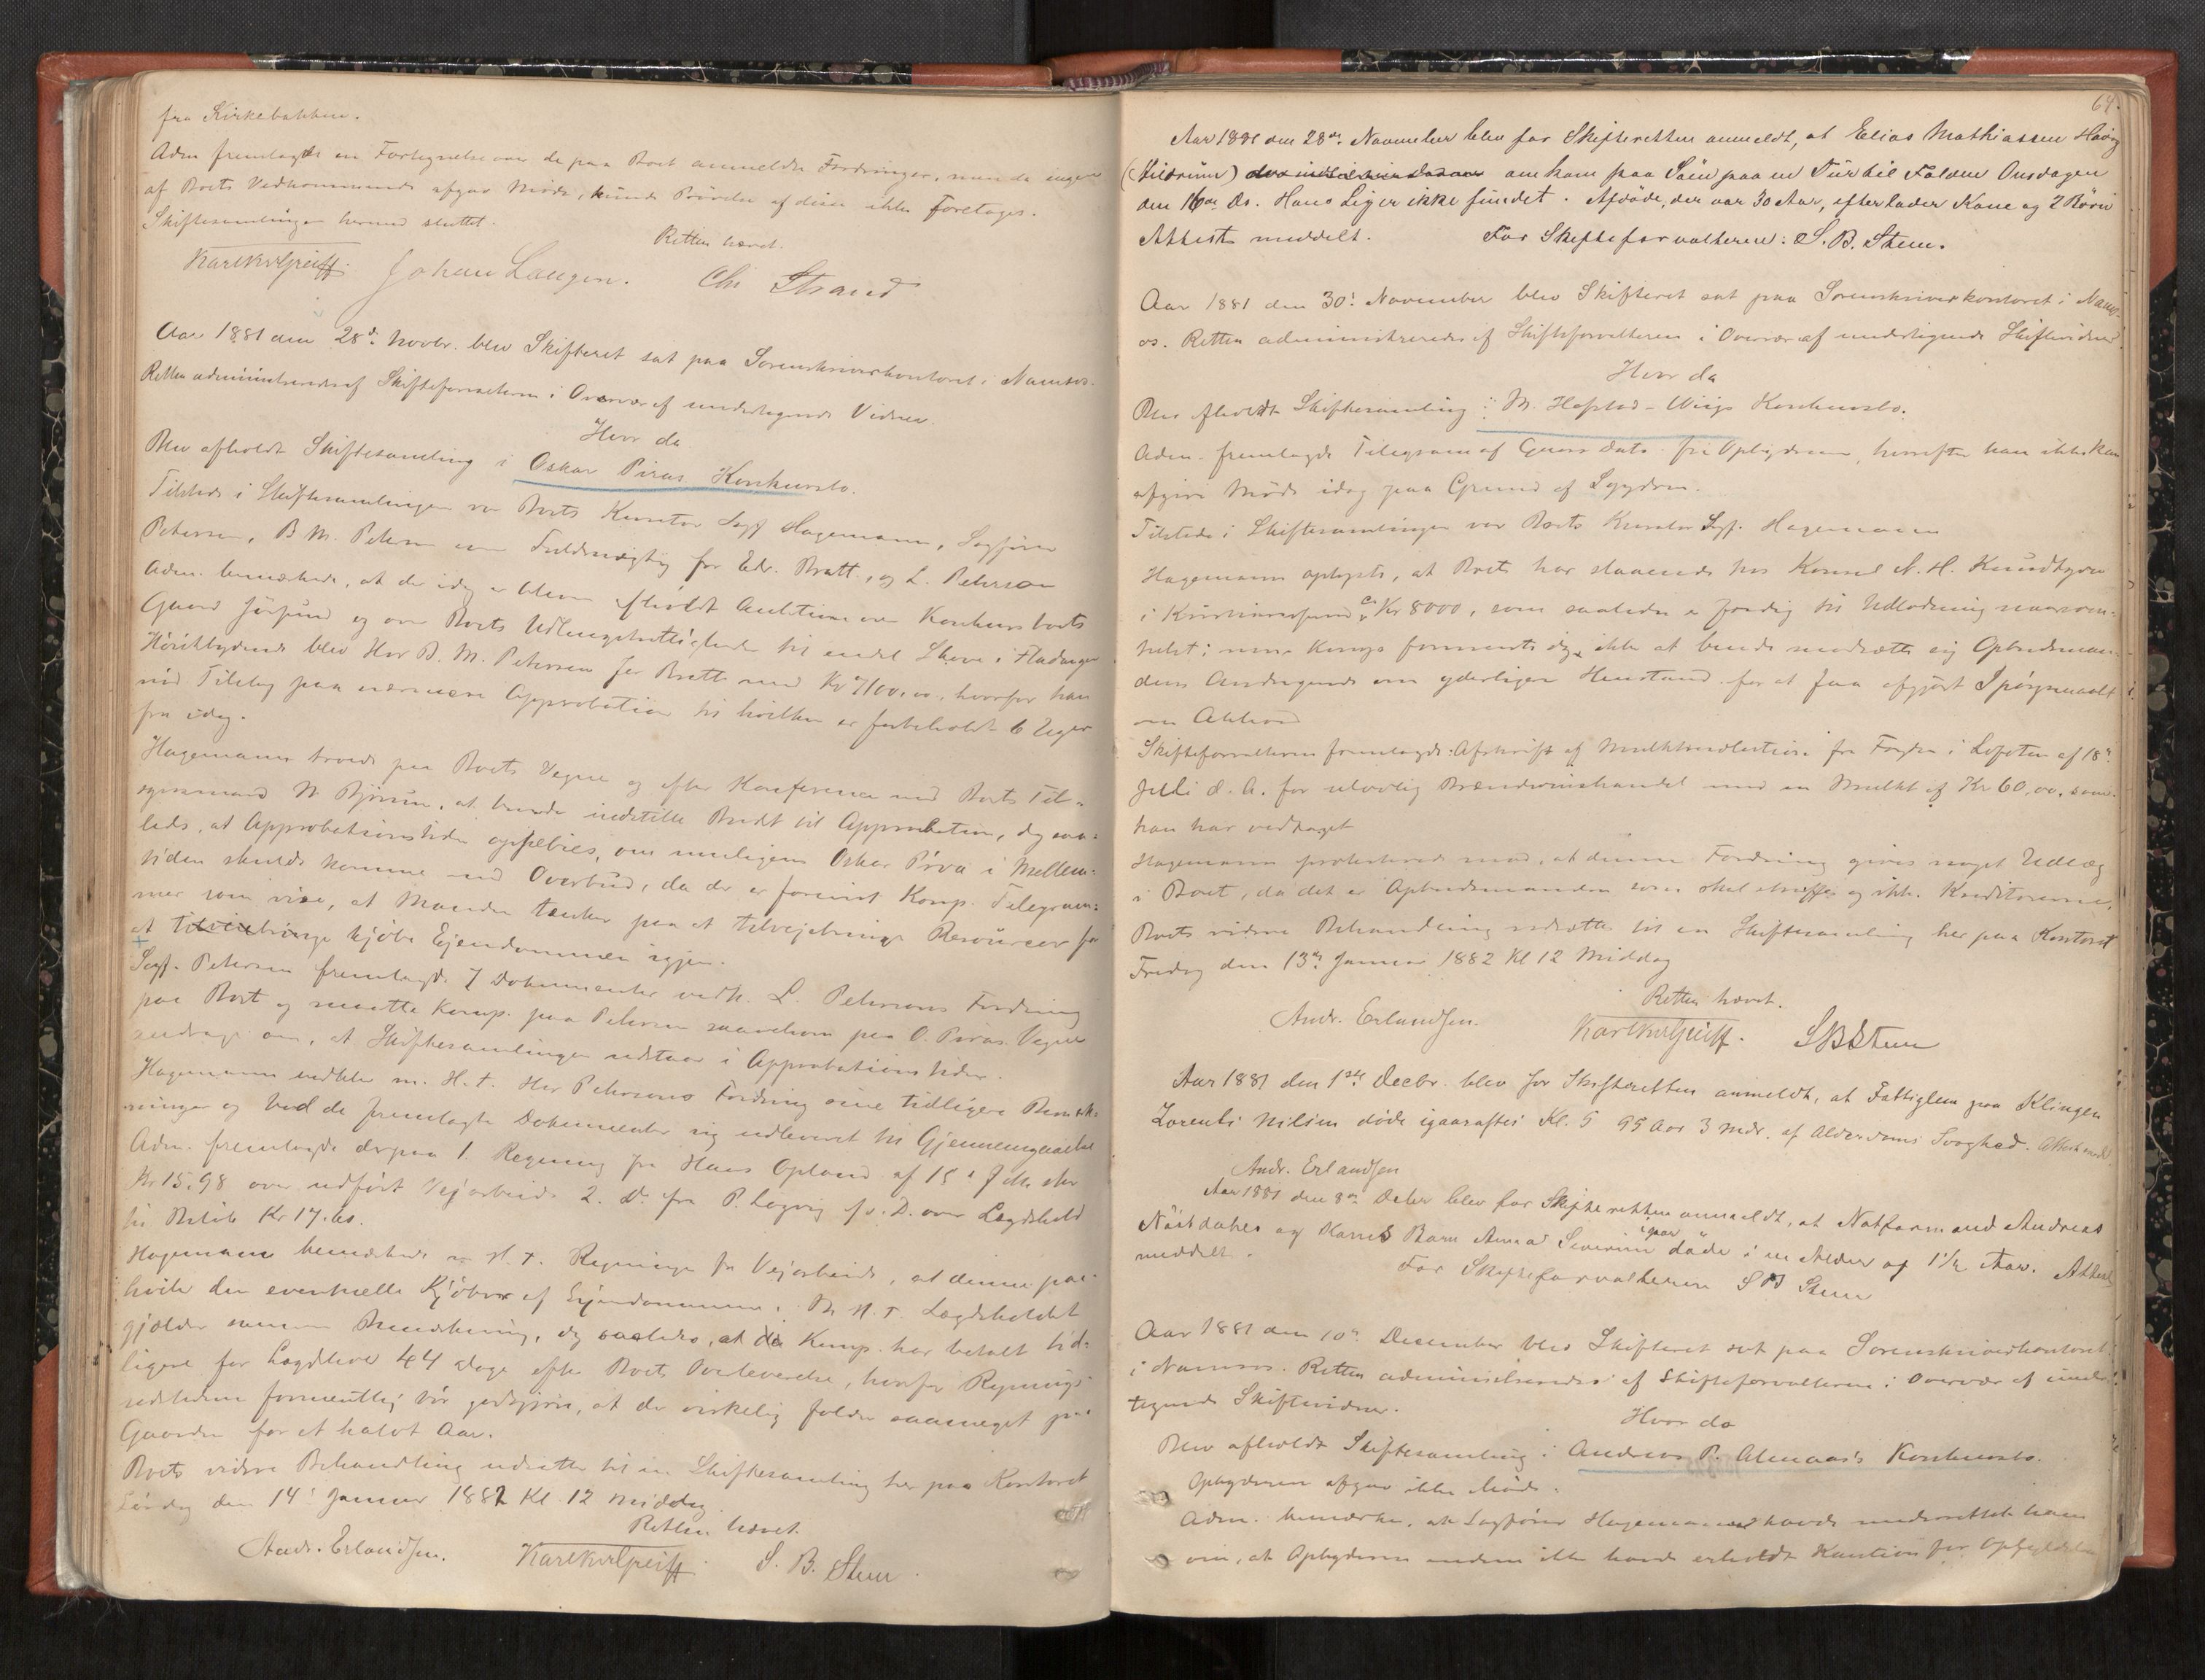 fra Kirkebakken.
Adm fremlagde en Fortegnelse over de paa Boet anmeldte Fordringer, men da ingen
af Boets Vedkommende afgav Møde, kunde Prøvelse af disse ikke foretages.
Skiftesamlingen hermed sluttet.
Retten hævet.
Johan Langen. Chr Strand
Aar 1881 den 28de Novbr. blev Skifteret sat paa Sorenskriverkontoret i Namsos.
Retten administreredes af Skifteforvalteren i Overvær af undertegnede Vidner.
Hvor da
Blev afholdt Skiftesamling i Oskar Piras Konkursbo.
Tilstede i Skiftesamlingen var Boets Kurator Sagf Hagemann, Sagfører
Petersen, B. M. Petersen som Fuldmægtig for Edv. Bratt, og L. Peterson
Adm. bemærkede, at der idag er bleven afholdt Auktion over Konkursboets
Gaard og over Boets til endel Skove i
Høistbydende blev Hr B. M. Petersen for Bratt med Kr 7100,00, hvorfor han
fik Tilslag paa nærmere Approbation til hvilken er forbeholdt 6 Uger
fra idag.
Hagemann troede paa Boets Vegne og efter Konference med Boets Til-
synsmand N. Bjørum, at burde indstille Budet til Approbation, dog saa-
ledes, at Approbationstiden oppebies, om muligens Oskar Pira i Mellem-
tiden skulde komme med Overbud, da der er forevist Komp. Telegram-
mer som vise, at Manden tænker paa at tilvejebringe Resourcer for
at tilveiebringe kjøbe Ejendommen igjen.
Sagf. Petersen fremlagde 7 Dokumenter vedk. L. Petersons Fordring
paa Boet og maatte Komp. paa Peterson saavelsom paa O. Piras Vegne
andrage om, at Skiftesamlingen udstaar i Approbationstiden.
Hagemann m. H. t. Hr Petersons Fordring sine tidligere Bemærk-
ninger og bad de fremlagte Dokumenter sig udleveret til Gjennemgaaelse
Adm. fremlagde derpaa 1. Regning fra Hans Opland af 15
Kr 15,98 over udført Vejarbeide 2. Do fra P. Lagvig f. s. D. over Lægdehold
til Beløb Kr 17.60.
Hagemann bemærkede m H. t. Regningen for Vejarbeide, at denne paa-
hviler den eventuelle Kjøber af Ejendommen. M H. t. Lægdeholdet
gjælder samme Bemærkning, dog saaledes, at Komp. har betalt tid-
ligere for Lægdehold 44 Dage efter Boets Overleverelse, hvorfor Regnings-
udstederen formentlig bør godtgjøre, at der virkelig falder saameget paa
Gaarden for et halvt Aar.
Boets videre Behandling udsættes til en Skiftesamling her paa Kontoret
Lørdag den 14de Januar 1882 Kl 12 Middag.
Retten hævet.
Andr. Erlandsen. S. B. Stene
64.
Aar 1881 den 28de November blev for Skifteretten anmeldt, at Elias Mathiassen Haug
(Hildrum) omkom paa Søen paa en Tur til Folden Onsdagen
den 16de ds. Hans Lig er ikke fundet. Afdøde, der var 30 Aar, efterlader Kone og 2 Børn
Attest meddelt. For Skifteforvalteren: S. B. Stene.
Aar 1881 den 30te November blev Skifteret sat paa Sorenskriverkontoret i Nams-
os. Retten administreredes af Skifteforvalteren i Overvær af undertegnede Skiftevidner
Hvor da
Blev afholdt Skiftesamling i M. Hafstad-Wiigs Konkursbo.
Adm. fremlagde Telegram af Gaars Dato fra Opbyderen, hvorefter han ikke kan
afgive Møde idag paa Grund af Sygdom.
Tilstede i Skiftesamlingen var Boets Kurator Sagf. Hagemann
Hagemann oplyste, at Boet har staaende hos Konsul N. H. Knudtzon
i Kristianssund ca Kr 8000, som saaledes er færdig til Udlodning naarsom-
helst; men Komp formente dog ikke at burde modsætte sig Opbudsman-
dens Andragende om yderligere Henstand for at faa afgjort Spørgsmaalet
om Akkord
Skifteforvalteren fremlagde: Afskrift af Mulktsresolution fra Fogden i Lofoten af 18de
Juli d. A. for ulovlig Brændevinshandel med en Mulkt af Kr 60,00, som
han har vedtaget
Hagemann protesterede mod, at denne Fordring gives noget Udlæg
i Boet, da det er Opbudsmanden som skal straffes og ikke Kreditorerne.
Boets videre Behandling udsættes til en Skiftesamling her paa Kontoret
Fredag den 13de Januar 1882 Kl 12 Middag
Retten hævet.
Andr. Erlandsen. S B Stene
Aar 1881 den 1ste Decbr. blev for Skifteretten anmeldt, at Fattiglem paa Klingen
Lorents Nilsen døde igaaraftes Kl. 5 95 Aar 3 Mdr. af Alderdoms Svaghed. Attest medd.
Andr. Erlandsen
Aar 1881 den 8de Decbr blev for Skifteretten anmeldt, at Notformand Andreas
Nøstdahls og Kones Barn Anna Severine igaar døde i en Alder af 1 1/2 Aar. Attest
meddelt. For Skifteforvalteren S B Stene
Aar 1881 den 10de December blev Skifteret sat paa Sorenskriverkontoret
i Namsos. Retten administreredes af Skifteforvalteren i Overvær af under-
tegnede Skiftevidner.
Hvor da
Blev afholdt Skiftesamling i Andreas P. Almaas's Konkursbo.
Opbyderen afgav ikke Møde.
Adm. bemærkede, at Sagfører Hagemann havde underrettet ham
om, at Opbyderen endnu ikke havde erholdt Kaution for Opfyldelse